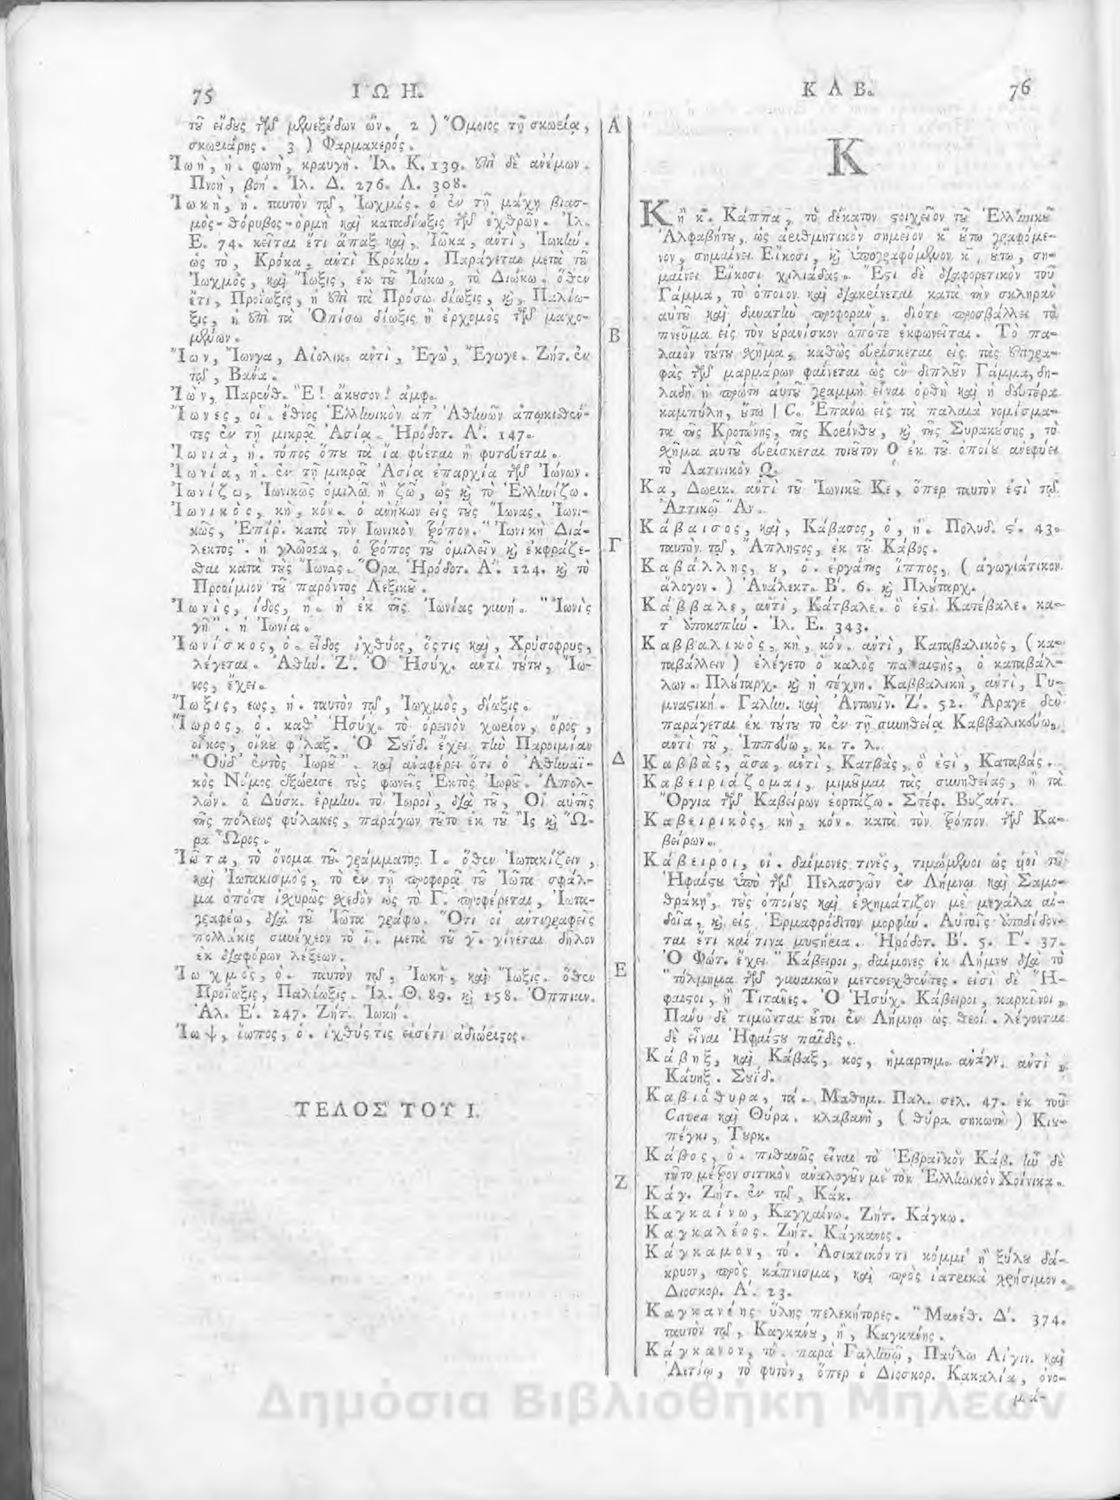 75 ΙΩΗ.
τοῦ εἴδους τῶν μυιεξέδων ὤν. 2 ) Ὅμοιος τῇ σκωρίᾳ,
3 ) Φαρμακερός.
Ἰωὴ, ἡ. φωνὴ, κραυγή. Ἰλ. Κ. 139. ἐπὶ δὲ ἀνέμων.
Πνοὴ, βοή. Ἰλ. Δ. 276. Λ. 308.
Ἰωκὴ, ἡ. ταυτὸν τῷ, Ἰωχμός. ὁ ἐν τῇ μάχῃ βιασ-
μὸς-θόρυβος-ὁρμὴ καὶ καταδίωξις τῶν ἐχθρῶν. Ἰλ.
Ε. 74. κεῖται ἔτι ἅπαξ καὶ, Ἰῶκα, αὐτὶ, Ἰωκήν.
ὡς τὸ, Κρόκα, αὐτὶ Κρόκην. Παράγεται μετὰ τοῦ
Ἰωχμὸς, καὶ Ἴωξις, ἐκ τοῦ Ἰώκω, τὸ Διώκω. ὅθεν
ἔτι, Προΐωξις, ἡ ἐπὶ τὰ Πρόσω δίωξις, καὶ, Παλίω-
ξις, ἡ ἐπὶ τὰ Ὀπίσω δίωξις ἢ ἐρχομὸς τῶν μαχο-
μένων.
Ἴων, Ἴωνγα, Αἰολικ. αὐτὶ, Ἐγὼ, Ἔγωγε. Ζήτ. ἐν
τῷ, Βανά.
Ἰὼν, Παρένθ. Ἔ! ἄκουσον! ἀμφ.
Ἴωνες, οἱ. ἔθνος Ἑλληνικὸν ἀπ' Ἀθηνῶν ἀπῳκισθέν-
τες ἐν τῇ μικρᾷ Ἀσίᾳ. Ἡρόδοτ. Α. 147.
Ἰωνιὰ, ἡ. τόπος ὅπου τὰ ἴα φύεται ἢ φυτεύεται.
Ἰωνία, ἡ. ἐν τῇ μικρᾷ Ἀσίᾳ ἐπαρχία τῶν Ἰώνων.
Ἰωνίζω, Ἰωνικῶς ὁμιλῶ ἢ ζῶ, ὡς καὶ τὸ Ἑλληνίζω.
Ἰωνικὸς, κὴ, κόν. ὁ ἀνήκων εἰς τοὺς Ἴωνας. Ἰωνι-
κῶς, Ἐπίρ. κατὰ τὸν Ἰωνικὸν τρόπον. "Ἰωνικὴ Διά-
λεκτος". ἡ γλῶσσα, ὁ τρόπος τοῦ ὁμιλεῖν καὶ ἐκφράζε-
σθαι κατὰ τοὺς Ἴωνας. Ὅρα Ἡρόδοτ. Α. 124. καὶ τὸ
Προοίμιον τοῦ παρόντος Λεξικοῦ.
Ἰωνὶς, ίδος, ἡ. ἡ ἐκ τῆς Ἰωνίας γυνή. "Ἰωνὶς
γῆ". ἡ Ἰωνία.
Ἰωνίσκος, ὁ. εἶδος ἰχθύος, ὅςτις καὶ, Χρύσοφρυς,
λέγεται. Ἀθήν. Ζ. Ὁ Ἡσύχ. αὐτὶ τούτου, Ἴω-
νος, ἔχει.
Ἴωξις, εως, ἡ. ταυτὸν τῷ, Ἰωχμὸς, δίωξις.
Ἴωρος, ὁ. καθ' Ἡσύχ. τὸ ὀρεινὸν χωρίον, ὄρος,
οἶκος, οἴκου φύλαξ. Ὁ Σουΐδ. ἔχει τὴν Παροιμίαν
"Οὐδ' ἐντὸς Ἰωροῦ". καὶ ἀναφέρει ὅτι ὁ Ἀθηναϊ-
κὸς Νόμος ἐξώρισε τοὺς φονεῖς Ἐκτὸς Ἰωροῦ. Ἀπολ-
λών. ὁ Δύσκ. ἑρμην. τὸ Ἰωροὶ, διὰ τοῦ, Οἱ αὐτῆς
τῆς πόλεως φύλακες, παράγων τοῦτο ἐκ τοῦ Ἲς καὶ Ὥ-
ρα Ὦρος.
Ἰῶτα, τὸ ὄνομα τοῦ γράμματος Ι. ὅθεν Ἰωτακίζειν,
καὶ Ἰωτακισμὸς, τὸ ἐν τῇ προφορᾷ τοῦ Ἰῶτα σφάλ-
μα ὁπότε ἰσχυρῶς σχεδὸν ὡς τὸ Γ. προφέρεται, Ἰωτα-
γραφέω, διὰ τοῦ Ἰῶτα γράφω. Ὅτι οἱ ἀντιγραφεῖς
πολλάκις συνέχεον τὸ ι. μετὰ τοῦ γ. γίνεται δῆλον
ἐκ διαφόρων λέξεων.
Ἰωχμὸς, ὁ. ταυτὸν τῷ, Ἰωκὴ, καὶ Ἴωξις. ὅθεν
Προΐωξις, Παλίωξις. Ἰλ. Θ. 89. καὶ 158. Ὀππιαν.
Ἁλ. Ε. 247. Ζήτ. Ἰωκή.
Ἴωψ, ἴωπος, ὁ. ἰχθύς τις εἰσέτι ἀδιώριςος.
ΤΕΛΟΣ ΤΟΥ Ι.
Α
Β
Γ
Δ
Ε
Ζ
ΚΑΒ. 76
Κ
Κ ἢ κ. Κάππα, τὸ δέκατον ςοιχεῖον τοῦ Ἑλληνικοῦ
Ἀλφαβήτου, ὡς ἀριθμητικὸν σημεῖον κ' οὕτω γραφόμε-
νον, σημαίνει Εἴκοσι, καὶ ὑπογραφόμενον ͵κ, οὕτω, ση-
μαίνει Εἴκοσι χιλιάδας. Ἔςι δὲ διαφορετικὸν τοῦ
Γάμμα, τὸ ὁποῖον καὶ διακρίνεται κατὰ τὴν σκληρὰν
αὐτοῦ καὶ δυνατὴν προφορὰν, διότι προσβάλλει τὸ
πνεῦμα εἰς τὸν οὐρανίσκον ὁπότε ἐκφωνεῖται. Τὸ πα-
λαιὸν τούτου σχῆμα, καθὼς εὑρίσκεται εἰς τὰς ἐπιγρα-
φὰς τῶν μαρμάρων φαίνεται ὡς ἓν διπλοῦν Γάμμα, δη-
λαδὴ ἡ πρώτη αὐτοῦ γραμμὴ εἶναι ὀρθὴ καὶ ἡ δευτέρα
καμπύλη, οὕτω | C. Ἐπάνω εἰς τὰ παλαιὰ νομίσμα-
τα τῆς Κροτώνης, τῆς Κορίνθου, καὶ τῆς Συρακούσης, τὸ
σχῆμα αὐτοῦ εὑρίσκεται τοιοῦτον Ϙ ἐκ τοῦ ὁποίου ἀνεφύει
τὸ Λατινικὸν Q.
Κα, Δωρικ. αὐτὶ τοῦ Ἰωνικοῦ Κε, ὅπερ ταυτὸν ἐςὶ τῷ
Ἀττικῷ Ἄν.
Κάβαισος, καὶ, Κάβασος, ὁ, ἡ. Πολυδ. ς. 43.
ταυτὸν τῷ, Ἄπληςος, ἐκ τοῦ Κάβος.
Καβάλλης, ου, ὁ. ἐργάτης ἵππος, ( ἀγωγιάτικον
ἄλογον. ) Ἀνάλεκτ. Β. 6. καὶ Πλούταρχ.
Κάββαλε, αὐτὶ, Κάτβαλε. ὅ ἐςι Κατέβαλε. κα-
τ' ὑποκοπήν. Ἰλ. Ε. 343.
Καββαλικὸς, κὴ, κόν. αὐτὶ, Καταβαλικὸς, ( κα-
ταβάλλειν ) ἐλέγετο ὁ καλὸς παλαιςὴς, ὁ καταβάλ-
λων. Πλούταρχ. καὶ ἡ τέχνη. Καββαλικὴ, αὐτὶ, Γυ-
μναςική. Γαλην. καὶ Ἀντωνῖν. Ζ. 52. Ἄραγε δὲν
παράγεται ἐκ τούτου τὸ ἐν τῇ συνηθείᾳ Καββαλικεύω,
αὐτὶ τοῦ, Ἱππεύω, κ. τ. λ.
Καββὰς, ᾶσα, αὐτὶ, Κατβὰς, ὅ ἐςι, Καταβάς.
Καβειριάζομαι, μιμοῦμαι τὰς συνηθείας, ἢ τὰ
Ὄργια τῶν Καβείρων ἑορτάζω. Στέφ. Βυζαντ.
Καβειρικὸς, κὴ, κόν. κατὰ τὸν τρόπον τῶν Κα-
βείρων.
Κάβειροι, οἱ. δαίμονές τινες, τιμώμενοι ὡς υἱοὶ τοῦ
Ἡφαίςου ὑπὸ τῶν Πελασγῶν ἐν Λήμνῳ καὶ Σαμο-
θρᾴκῃ, τοὺς ὁποίους καὶ ἐσχημάτιζον μὲ μεγάλα αἰ-
δοῖα, καὶ εἰς Ἑρμαφρόδιτον μορφήν. Αὐτοῖς ἀπεδίδον-
ται ἔτι καί τινα μυςήρια. Ἡρόδοτ. Β. 5. Γ. 37.
Ὁ Φώτ. ἔχει "Κάβειροι, δαίμονες ἐκ Λήμνου διὰ τὸ
"τόλμημα τῶν γυναικῶν μετενεχθέντες. εἰσὶ δὲ Ἥ-
φαιςοι, ἢ Τιτᾶνες. Ὁ Ἡσύχ. Κάβειροι, καρκίνοι,
Πάνυ δὲ τιμῶνται οὗτοι ἐν Λήμνῳ ὡς θεοί. λέγονται
δὲ εἶναι Ἡφαίςου παῖδες.
Κάβηξ, καὶ Κάβαξ, κος, ἡμαρτημ. ἀνάγν. αὐτὶ,
Κάυηξ. Σουΐδ.
Καβιάθυρα, τά. Μαθημ. Παλ. σελ. 47. ἐκ τοῦ
Cavea καὶ Θύρα. κλαβανὴ, ( θύρα σηκωτὴ ) Κιυ-
πέγκι, Τουρκ.
Κάβος, ὁ. πιθανῶς εἶναι τὸ Ἑβραϊκὸν Κάβ. ἦν δὲ
τοῦτο μέτρον σιτικὸν ἀναλογοῦν μὲ τὸν Ἑλληνικὸν Χοίνικα.
Κάγ. Ζήτ. ἐν τῷ, Κάκ.
Καγκαίνω, Καγχαίνω. Ζήτ. Κάγκω.
Καγκαλέος. Ζήτ. Κάγκανος.
Κάγκαμον, τό. Ἀσιατικόν τι κόμμι ἢ ξύλου δά-
κρυον, πρὸς κάπνισμα, καὶ πρὸς ἰατρικὰ χρήσιμον.
Διοσκορ. Α. 23.
Καγκανέης ὕλης πελεκήτορες. "Μανέθ. Δ. 374.
ταυτὸν τῷ, Καγκάνου, ἢ, Καγκάνης.
Κάγκανον, τό. παρὰ Γαληνῷ, Παύλῳ Αἰγιν. καὶ
Ἀετίῳ, τὸ φυτὸν, ὅπερ ὁ Διοσκορ. Κακαλία, ὀνο-
μά-
Δημόσια Βιβλιοθήκη Μηλεών